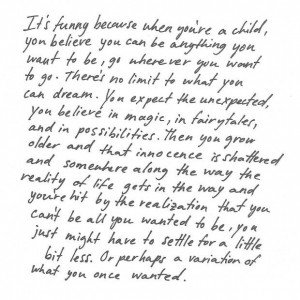 It's funny because when you're a child,
you believe you can be anything you
want to be, go wherever you want
to go. There's no limit to what you
can dream. You expect the unexpected,
you believe in magic, in fairytales,
and in possibilities. Then you grow
older and that innocence is shattered
and somewhere along the way the
reality of life gets in the way and
you're hit by the realization that you
can't be all you wanted to be, you
just might have to settle for a little
bit less. Or perhaps a variation of
what you once wanted.